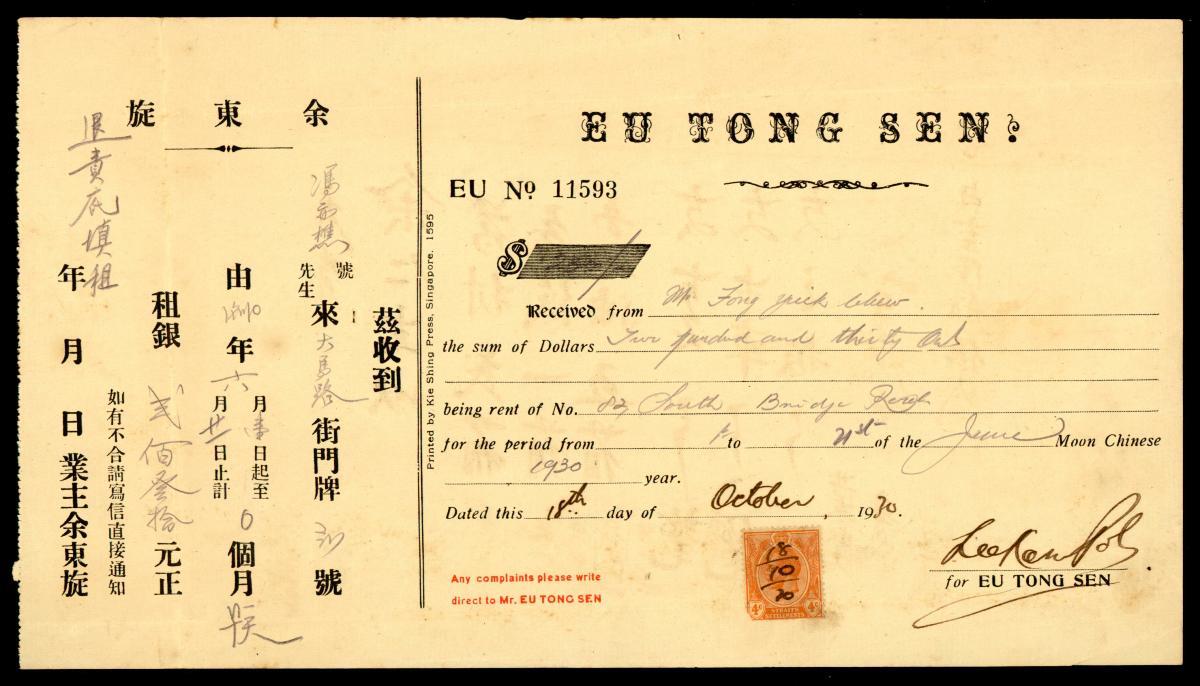 余東旋
茲收到
號
先生
來大馬路街門牌
號
由
年六月
日起至
月廿
日止計
0個月
租銀
弍佰叁拾元正
如有不合請寫信直接通知
退責底填租
年月日業主余東旋
Printed by Kie Shing Press, Singapore. 1595
EU TONG SEN.
EU No 11593
$
Received from Mr. Fong
the sum of Dollars Two hundred and thirty Only
being rent of No. 82 South Bridge Road
for the period from 1st to 21st of the June Moon Chinese
1930 year.
Dated this 18th day of October, 1930.
for EU TONG SEN
Any complaints please write
direct to Mr. EU TONG SEN
18
10
30
4c STRAITS SETTLEMENTS 4c